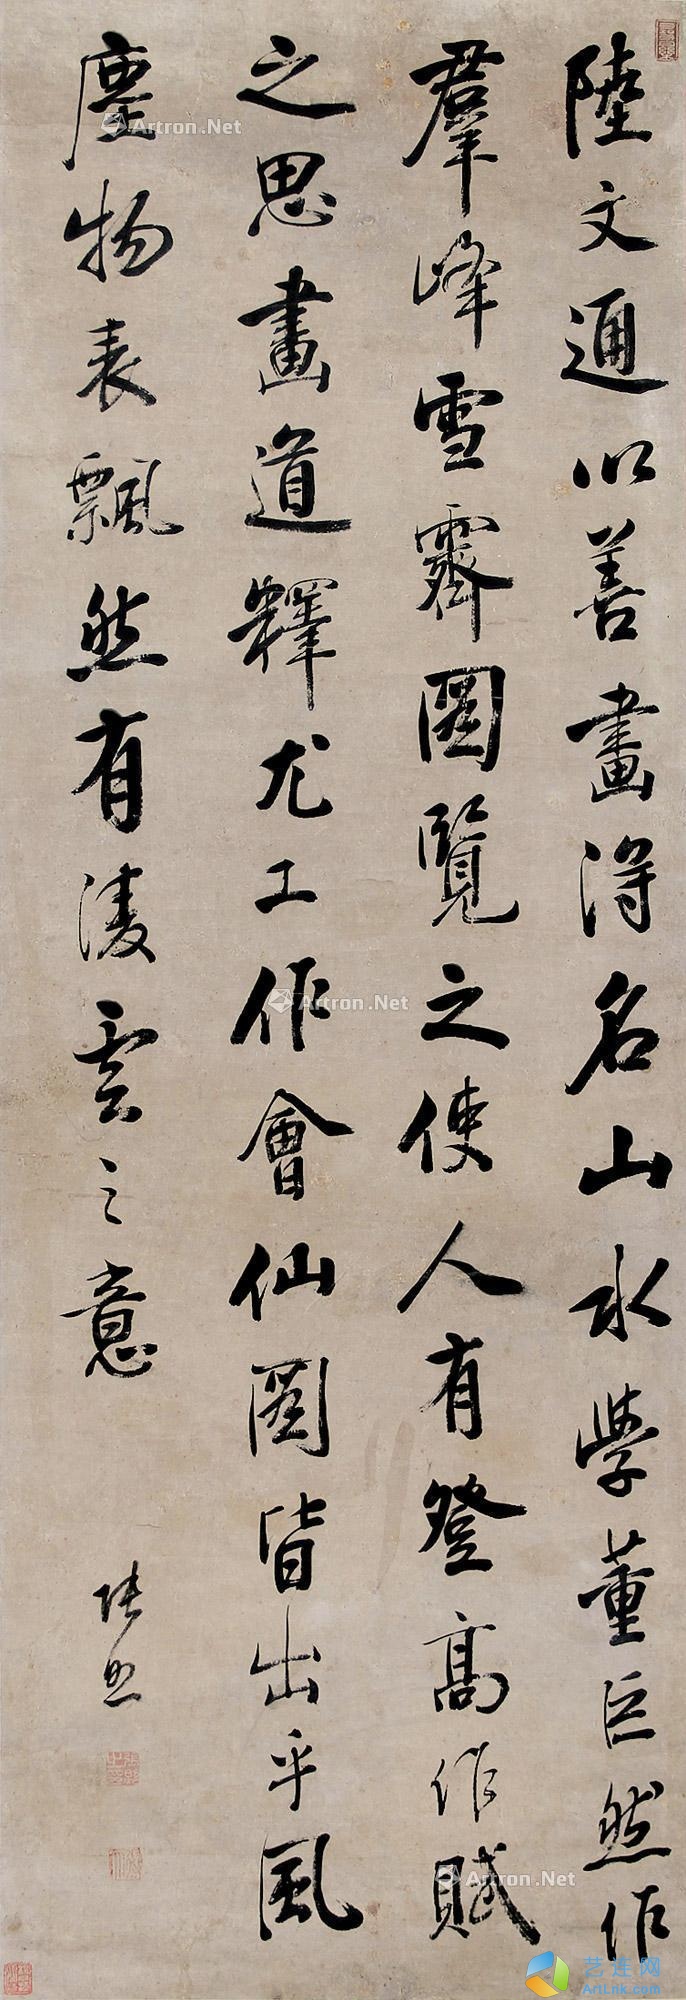 陸文通以善畫得名山水學董巨然作
羣峰雪霽圖覽之使人有登高作賦
之思畫道釋尤工作會仙圖皆出乎風
塵物表飄然有淩雲之意
張照
Artron.Net
Artron.Net
Artron.Net
Artron.Net
艺连网
ArtLink.com